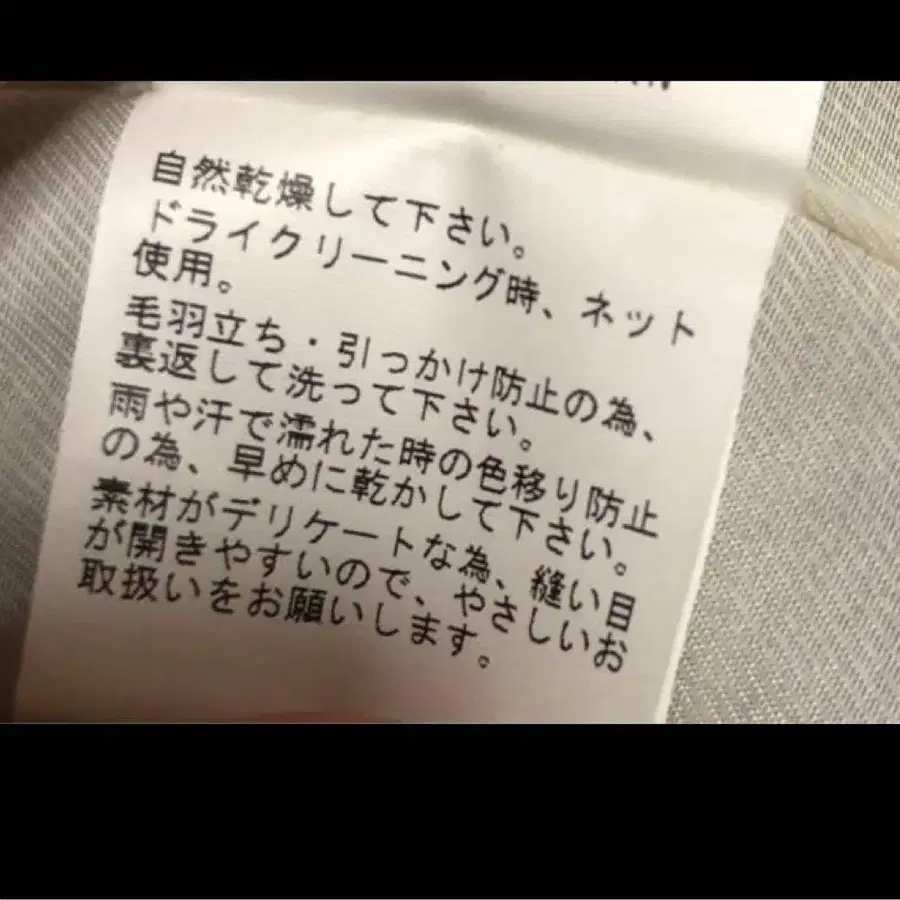 自然乾燥して下さい。
ドライクリーニング時、ネット
使用。
毛羽立ち・引っかけ防止の為、
裏返して洗って下さい。
雨や汗で濡れた時の色移り防止
の為、早めに乾かして下さい。
素材がデリケートな為、縫い目
が開きやすいので、やさしいお
取扱いをお願いします。